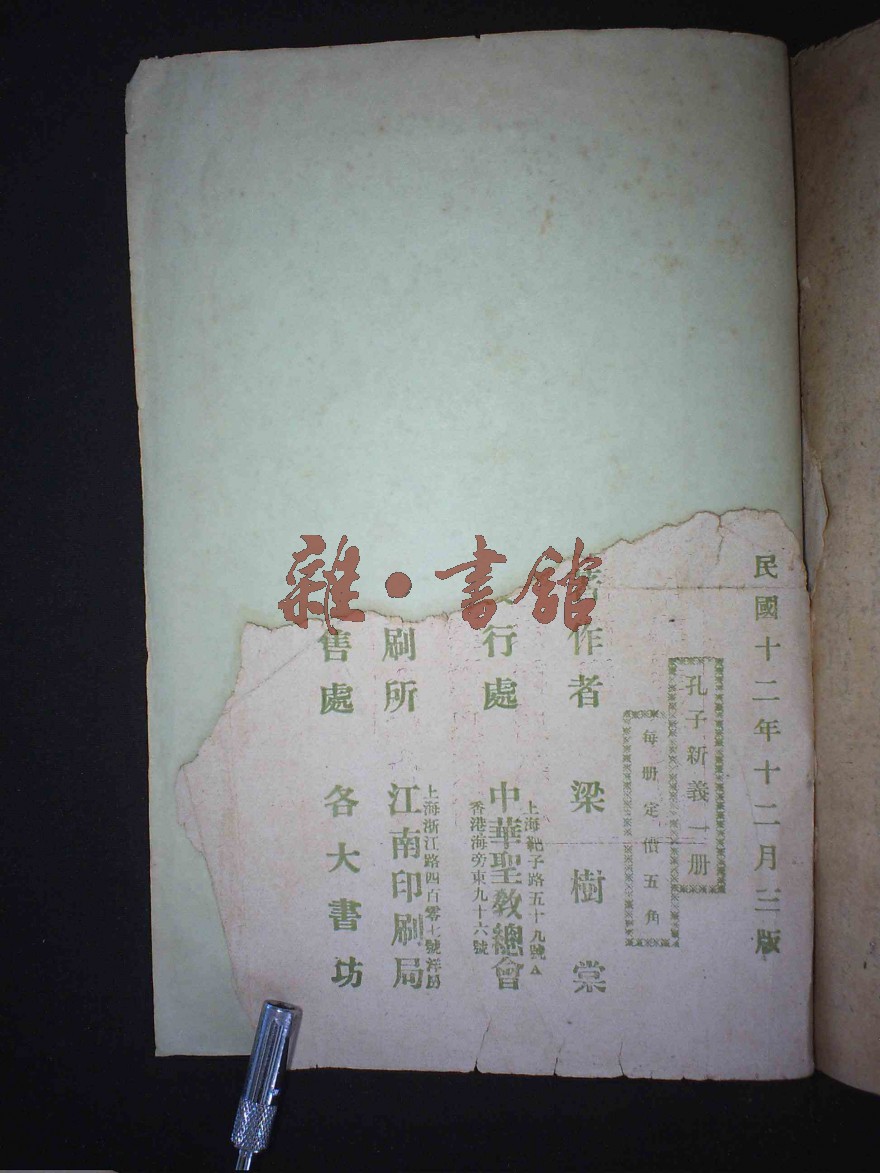 民國十二年十二月三版
孔子新義一册
每册定價五角
著作者 梁樹棠
行處 中華聖教總會
上海靶子路五十九號A
香港海旁東九十六號
刷所 江南印刷局
上海浙江路四百零七號洋房
售處 各大書坊
雜·書館